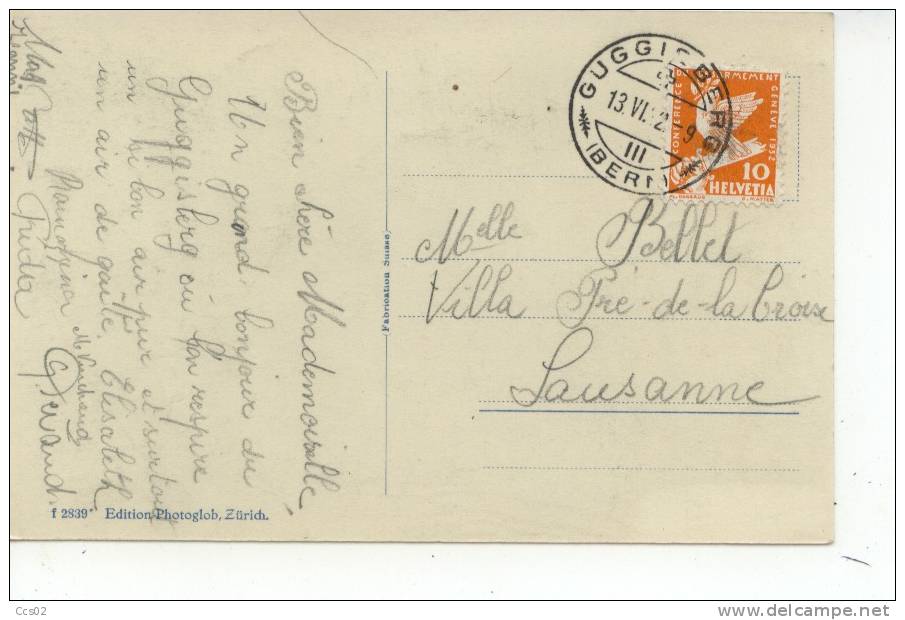 Bien chère Mademoiselle,
Un grand bonjour du
Guggisberg où l'on respire
un si bon air pur et surtout
un air de gaité. Elisabeth
Frieda
f 2839 Edition Photoglob, Zürich.
Fabrication Suisse
GUGGISBERG
13.VI. 2.-9
III
(BERN)
CONFERENCE DU DESARMEMENT GENÈVE 1932
10
HELVETIA
Melle Bellet
Villa Pré-de-la Croix
Lausanne
Ccs02
delcampe.net